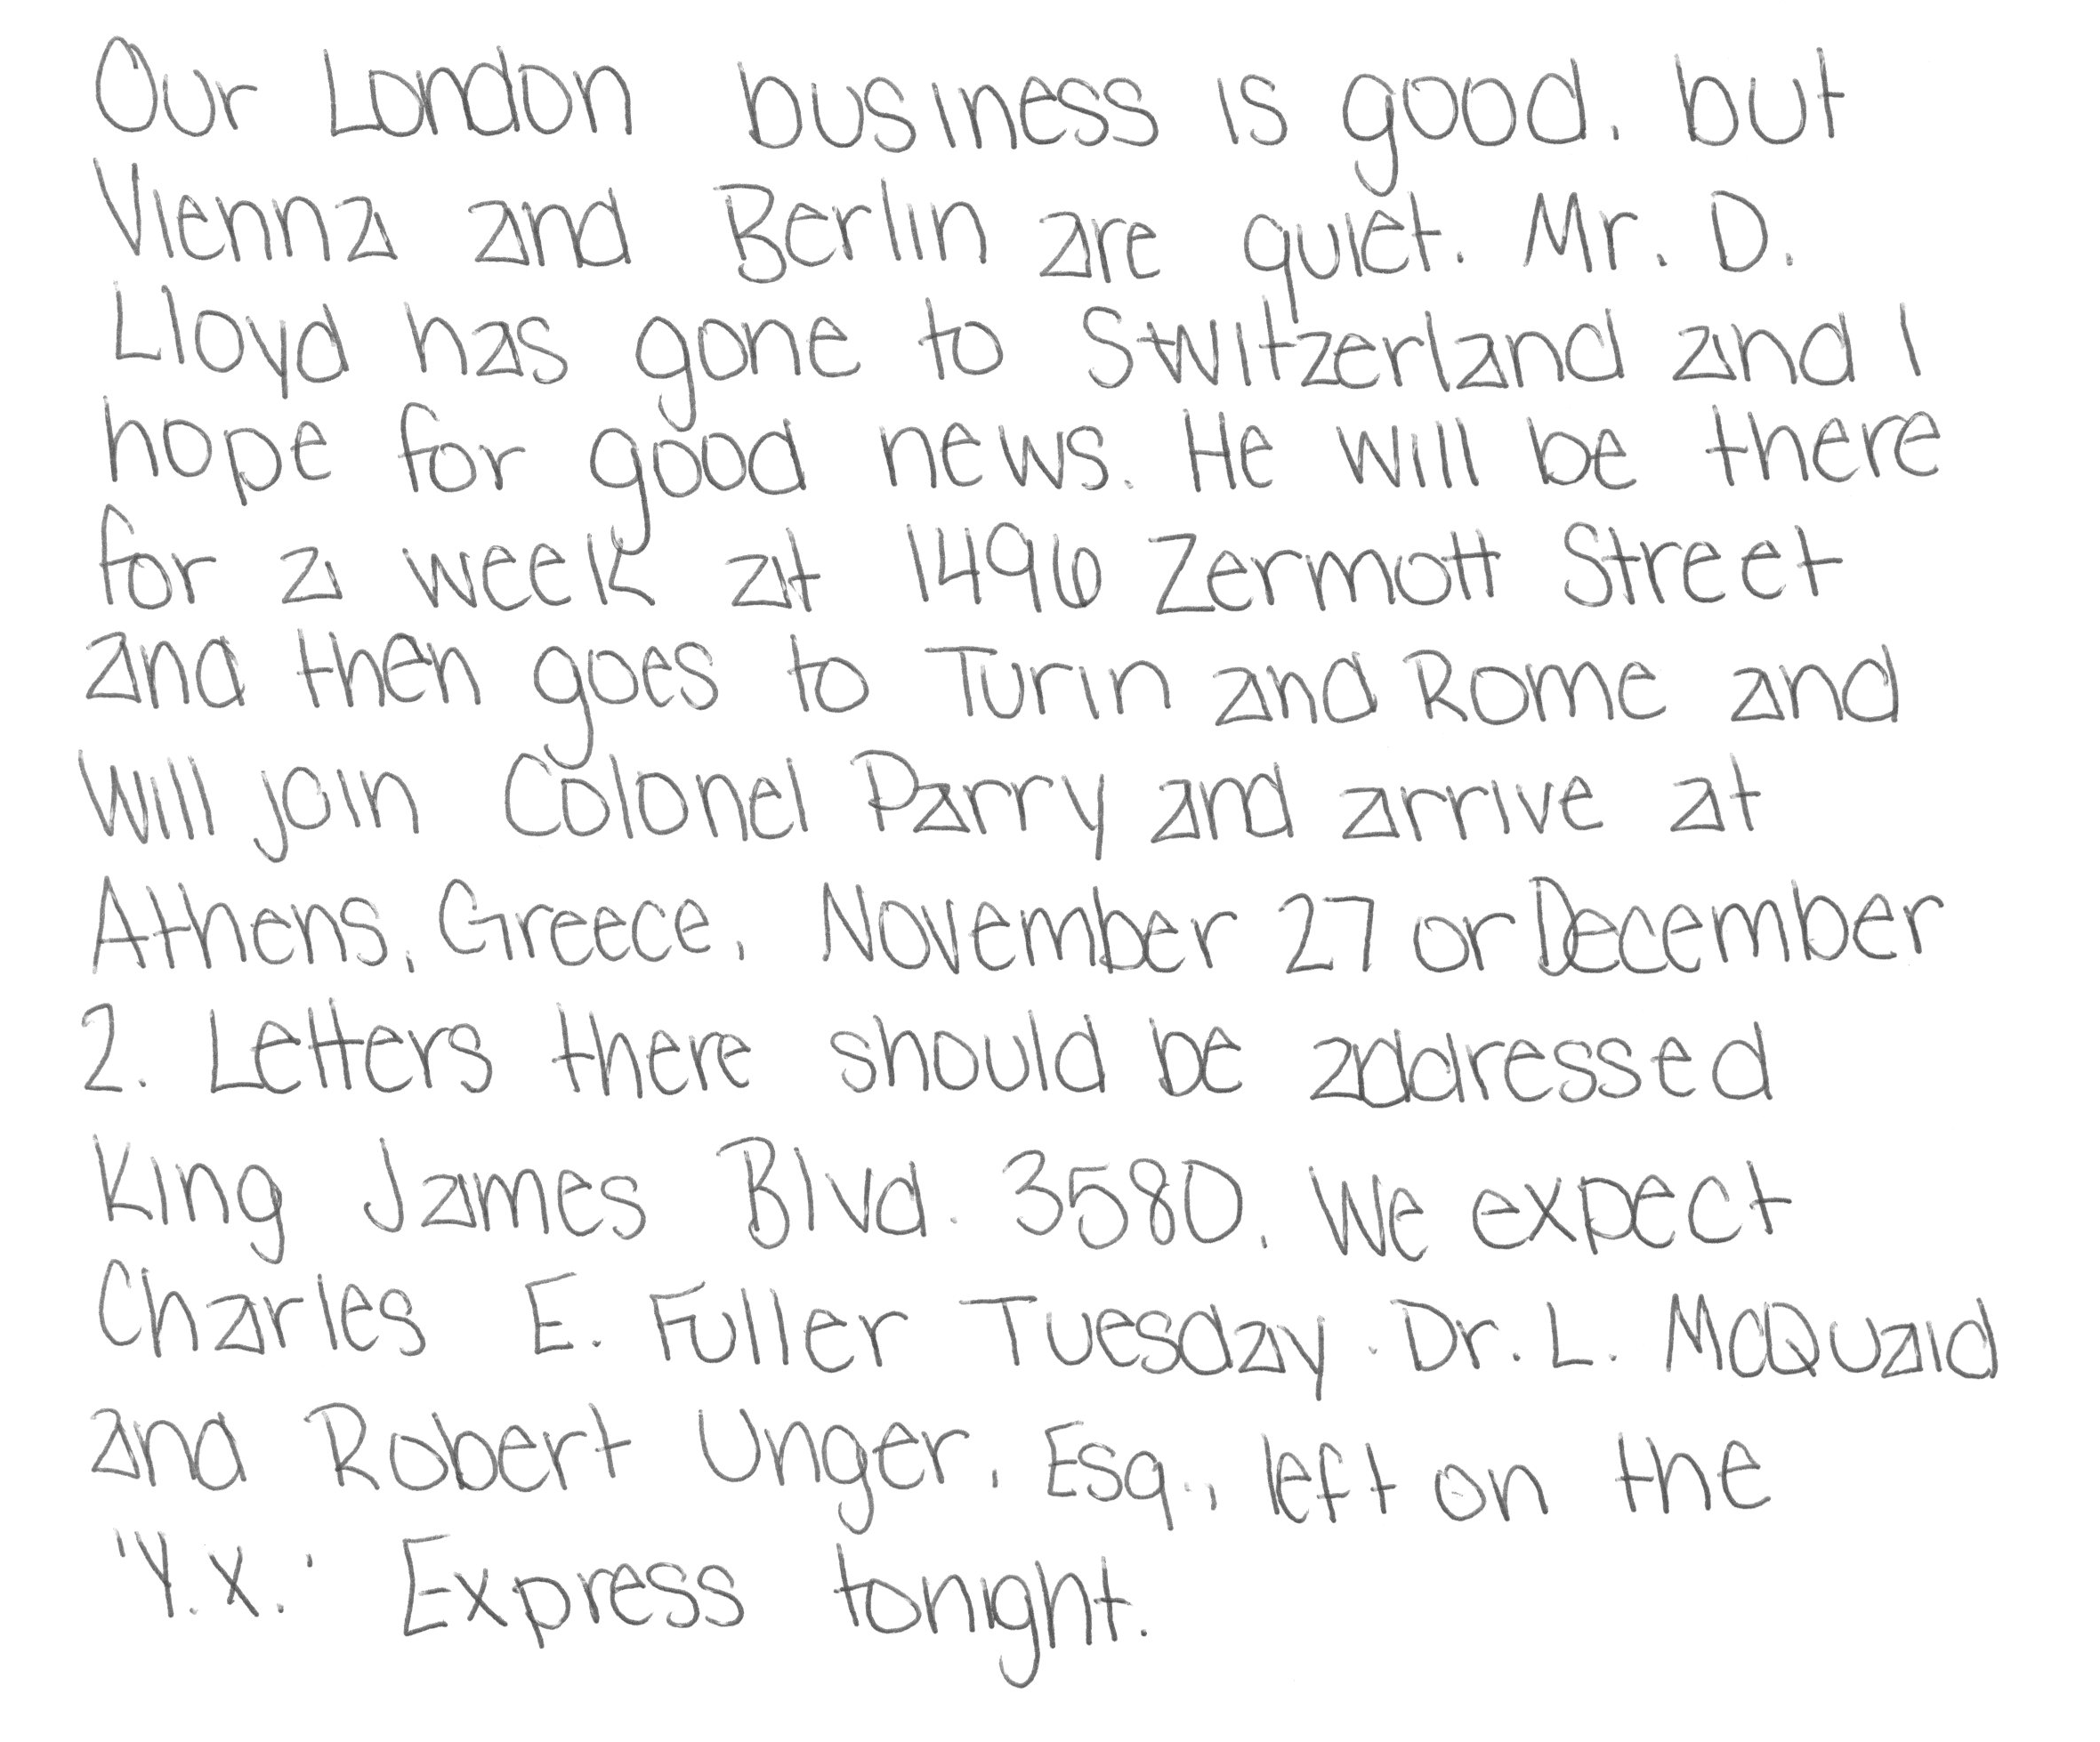 Our London business is good, but
Vienna and Berlin are quiet. Mr. D.
Lloyd has gone to Switzerland and I
hope for good news. He will be there
for a week at 1496 Zermott Street
and then goes to Turin and Rome and
will join Colonel Parry and arrive at
Athens, Greece, November 27 or December
2. Letters there should be addressed
King James Blvd. 3580. We expect
Charles E. Fuller Tuesday. Dr. L. McQuaid
and Robert Unger, Esq., left on the
'Y.X.' Express tonight.